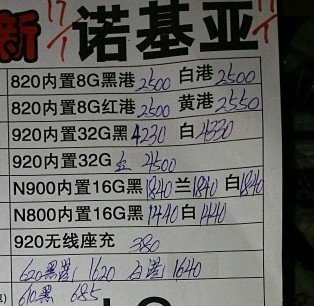 新 17/1 诺基亚 17/1
820内置8G黑港2500 白港2500
820内置8G红港2500 黄港2550
920内置32G黑4230 白4330
920内置32G 红 4500
N900内置16G黑1840 兰1840 白1840
N800内置16G黑1440 白1440
920无线座充 380
620黑港 1620 白港 1640
610黑 685